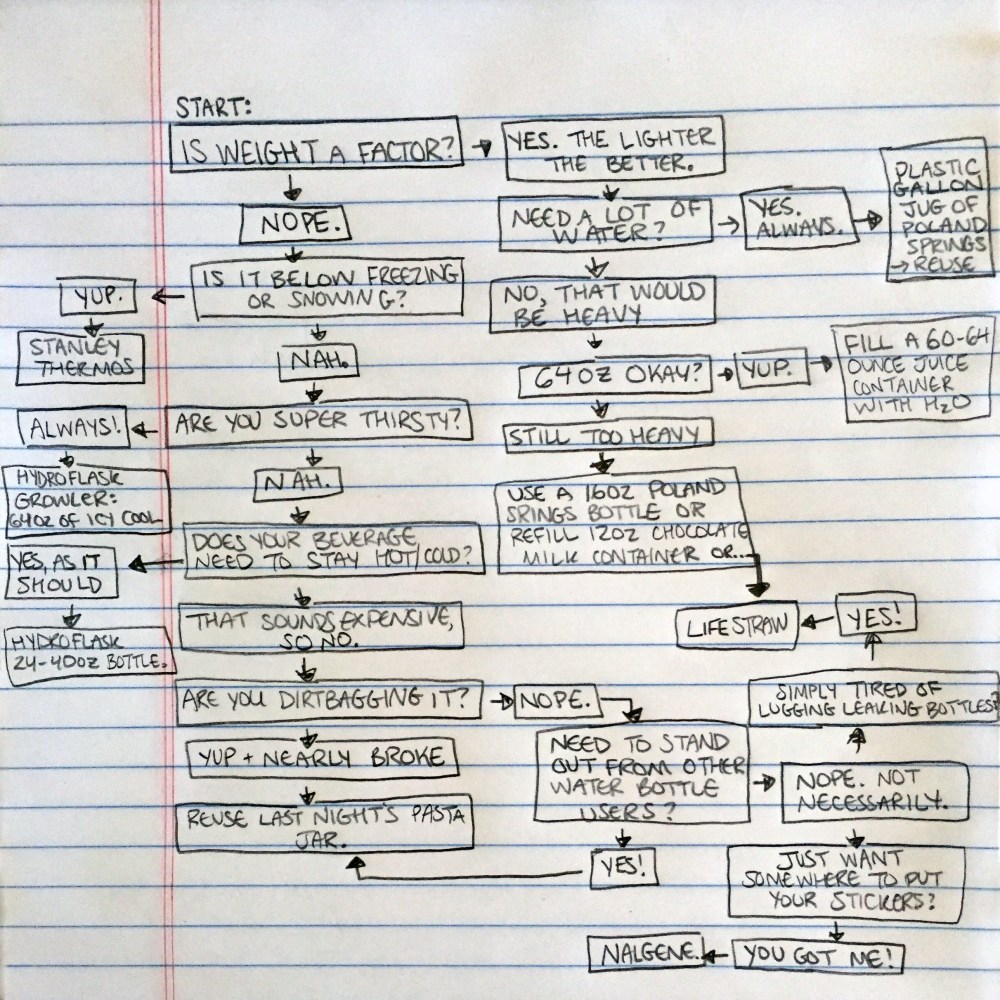 START:
IS WEIGHT A FACTOR?
YES. THE LIGHTER
THE BETTER.
NOPE.
NEED A LOT OF
WATER?
YES.
ALWAYS.
PLASTIC
GALLON
JUG OF
POLAND
SPRINGS
→ REUSE
IS IT BELOW FREEZING
OR SNOWING?
YUP.
STANLEY
THERMOS
NO, THAT WOULD
BE HEAVY
NAH.
64OZ OKAY?
YUP.
FILL A 60-64
OUNCE JUICE
CONTAINER
WITH H2O
ARE YOU SUPER THIRSTY?
ALWAYS!
HYDROFLASK
GROWLER:
64OZ OF ICY COOL
STILL TOO HEAVY
NAH.
USE A 16OZ POLAND
SRINGS BOTTLE OR
REFILL 12OZ CHOCOLATE
MILK CONTAINER OR...
DOES YOUR BEVERAGE
NEED TO STAY HOT/COLD?
YES, AS IT
SHOULD
HYDROFLASK
24-40OZ BOTTLE.
THAT SOUNDS EXPENSIVE,
SO NO.
LIFESTRAW
YES!
ARE YOU DIRTBAGGING IT?
NOPE.
SIMPLY TIRED OF
LUGGING LEAKING BOTTLES?
YUP + NEARLY BROKE
NEED TO STAND
OUT FROM OTHER
WATER BOTTLE
USERS?
NOPE. NOT
NECESSARILY.
REUSE LAST NIGHT'S PASTA
JAR.
YES!
JUST WANT
SOMEWHERE TO PUT
YOUR STICKERS?
NALGENE.
YOU GOT ME!